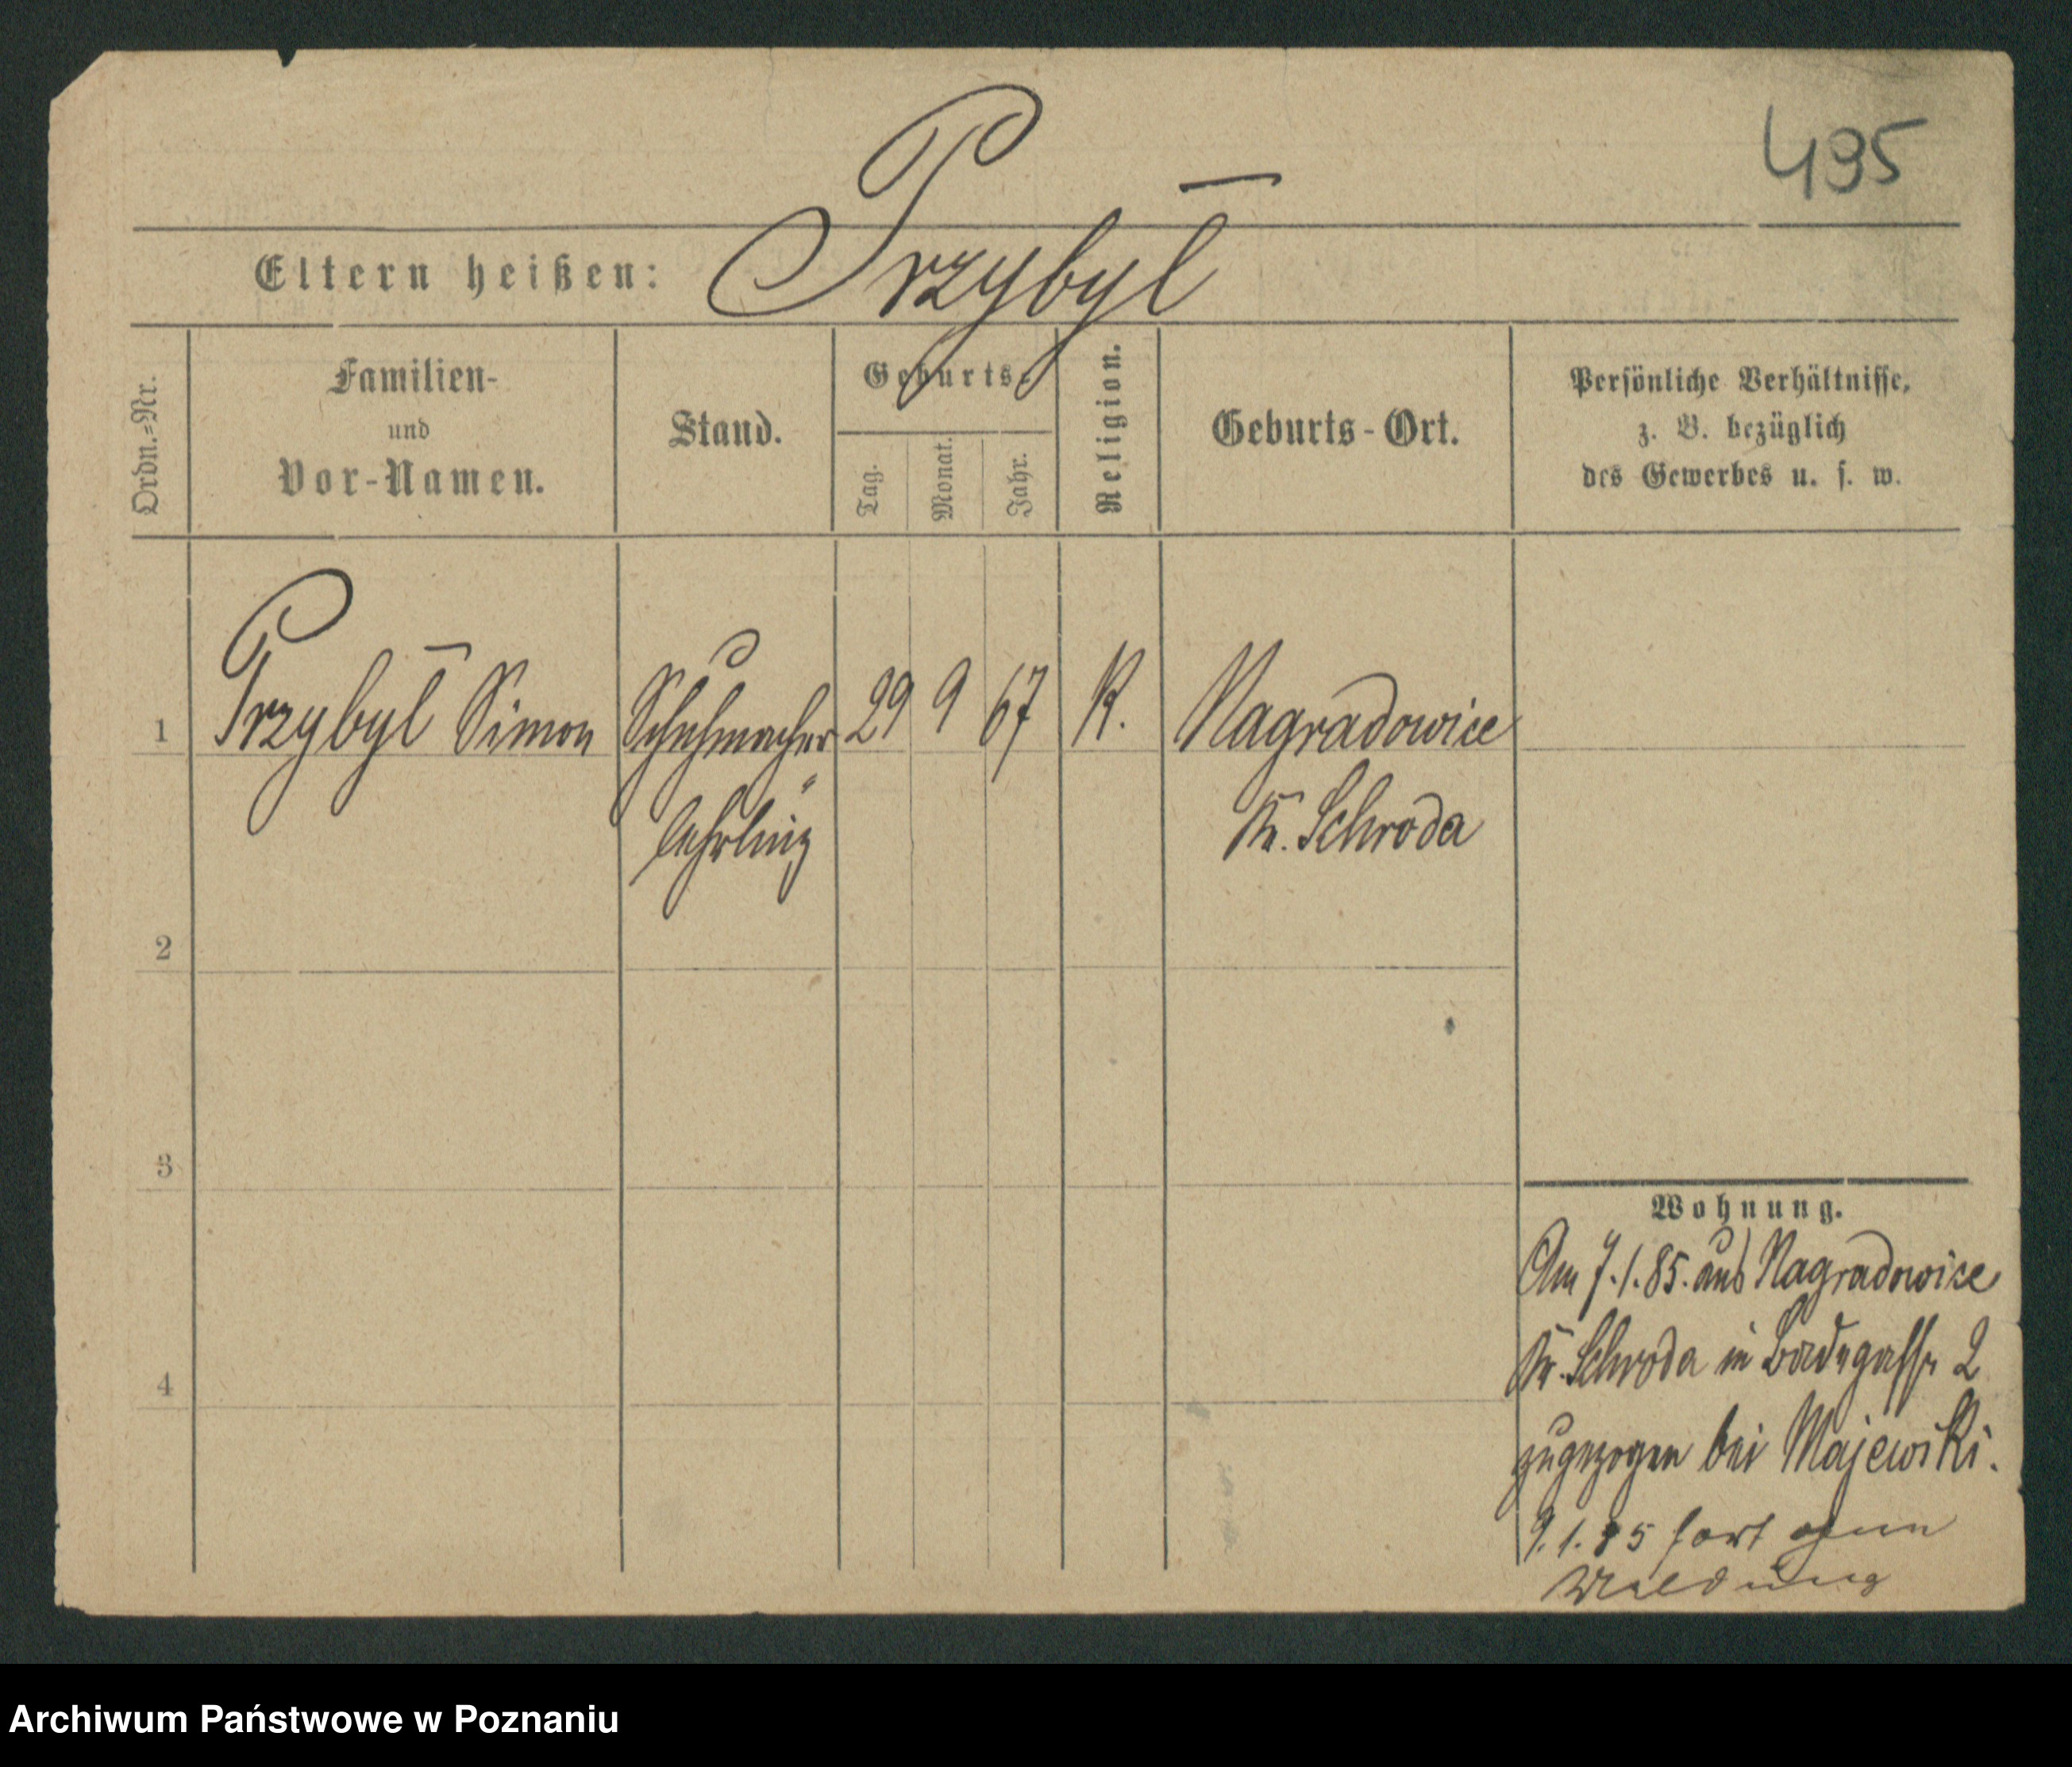 495
Przybył
Eltern heißen:
Ordn.=Nr.
Familien-
und
Vor-Namen.
Stand.
Geburts-
Tag.
Monat.
Jahr.
Religion.
Geburts-Ort.
Persönliche Verhältnisse,
z. B. bezüglich
des Gewerbes u. s. w.
1 Przybył Simon Schuhmacher 29 9 67 K. Nagradowice
lehrling Kr. Schroda
2
3
4
Wohnung.
Am 7.1.85. aus Nagradowice
Kr. Schroda in Badegasse 2
zugezogen bei Majewski.
9.1.85 fort
Meldung
Archiwum Państwowe w Poznaniu